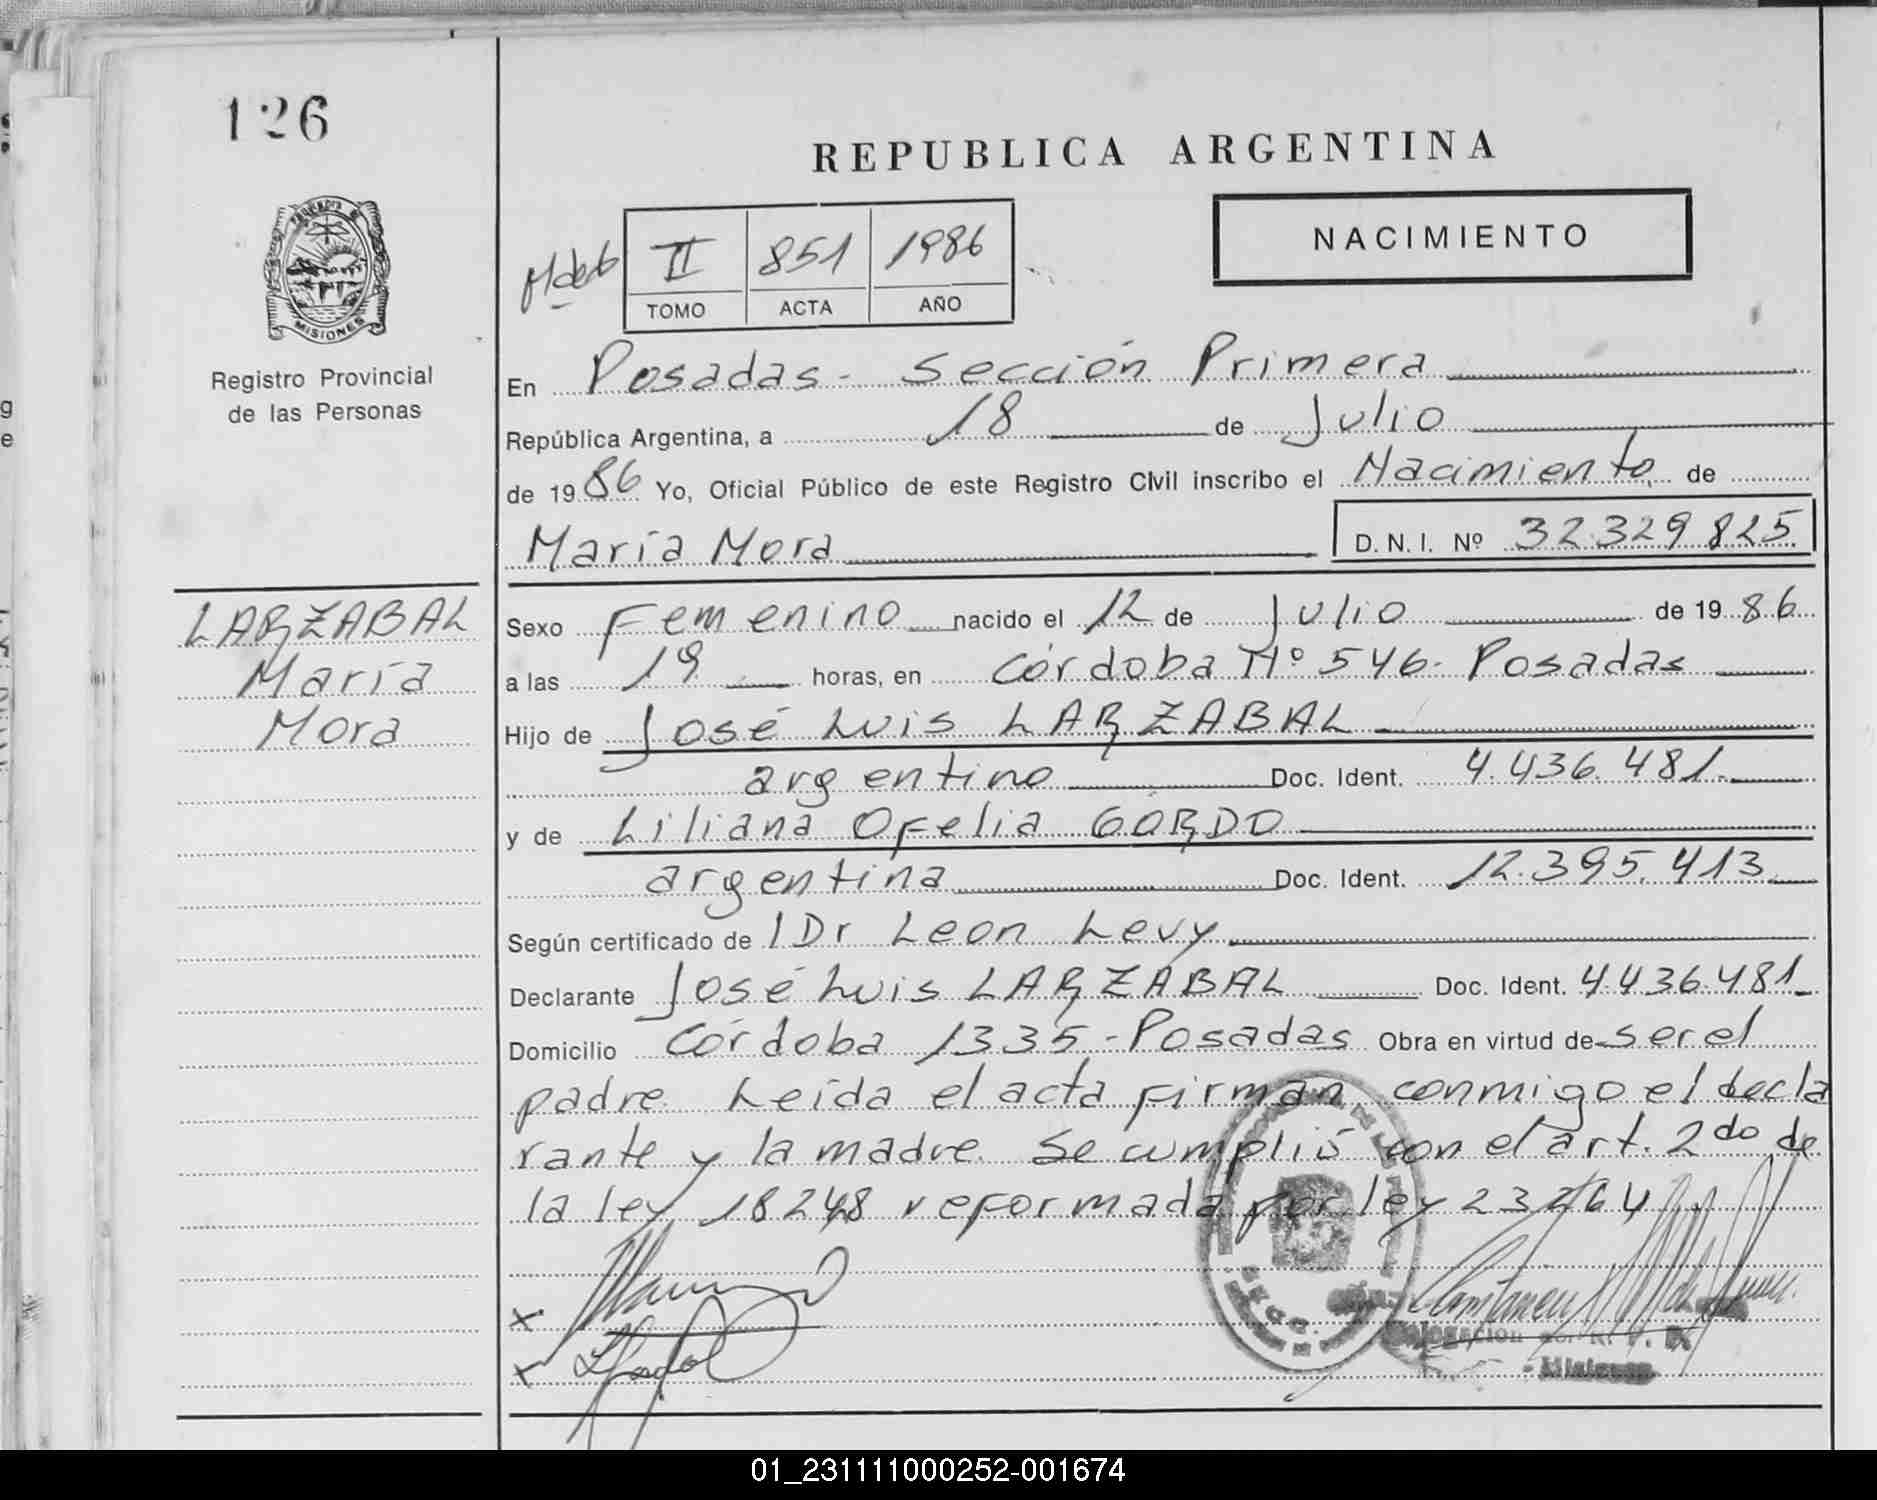 126
REPUBLICA ARGENTINA
NACIMIENTO
II 851 1986
TOMO ACTA AÑO
MISIONES
Registro Provincial
de las Personas
En Posadas - Sección Primera
República Argentina, a 18 de Julio
de 1986 Yo, Oficial Público de este Registro Civil inscribo el Nacimiento de
María Mora D. N. I. Nº 32.329.825
LARZABAL
María
Mora
Sexo Femenino nacido el 12 de Julio de 1986
a las 19 horas, en Córdoba Nº 546 - Posadas
Hijo de José Luis LARZABAL
argentino Doc. Ident. 4.436.481
y de Liliana Ofelia GORDO
argentina Doc. Ident. 12.395.413
Según certificado de l Dr Leon Levy
Declarante José Luis LARZABAL Doc. Ident. 4.436.481
Domicilio Córdoba 1335 - Posadas Obra en virtud de ser el
padre. Leída el acta firman conmigo el decla
rante y la madre. Se cumplió con el art. 2do de
la ley 18248 reformada por ley 23264
x
x
Delegación
- Misiones
01_231111000252-001674